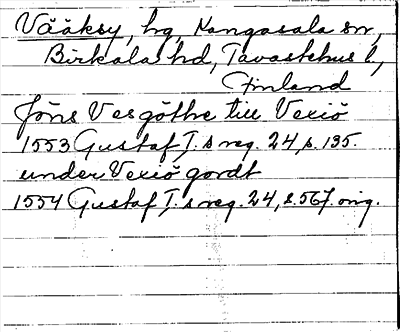 Vääksy, hg, Kangasala sn,
Birkala hd, Tavastehus l,
Finland
Jöns Vesgöthe till Vexiö
1553 Gustaf I.s reg. 24, s. 135.
under Vexiö gordt
1554 Gustaf I.s reg. 24, s. 567. orig.